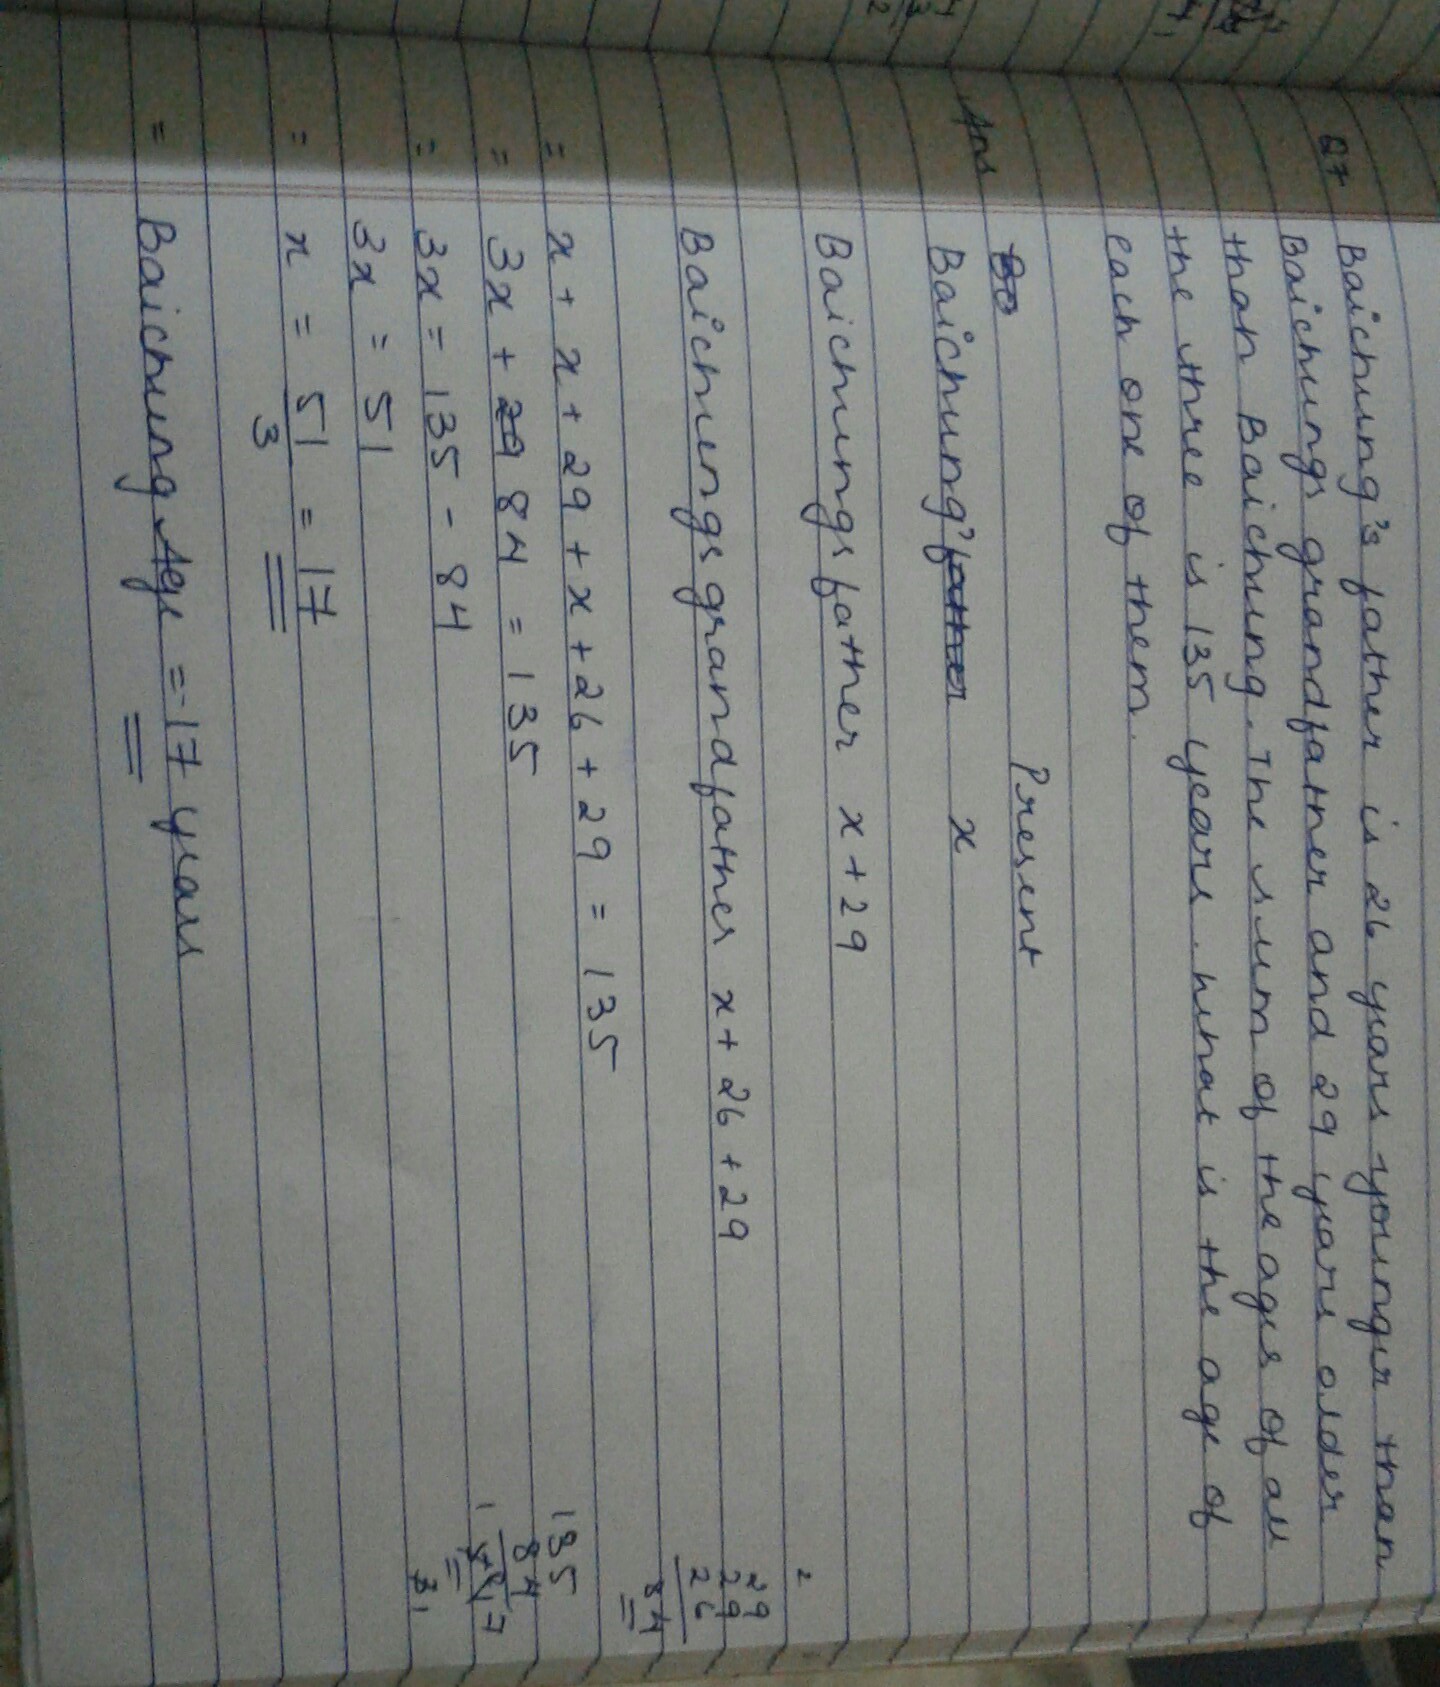 Q7 Baichung's father is 26 years younger than
Baichungs grandfather and 29 years older
than Baichung. The sum of the ages of all
the three is 135 years. What is the age of
each one of them.
Present
Ans Baichung's father x
Baichungs father x + 29
Baichungs grandfather x + 26 + 29
= x + x + 29 + x + 26 + 29 = 135
= 3x + 29 84 = 135
= 3x = 135 - 84
3x = 51
= x = 51/3 = 17
= Baichung Age = 17 years
29
29
26
84
135
84